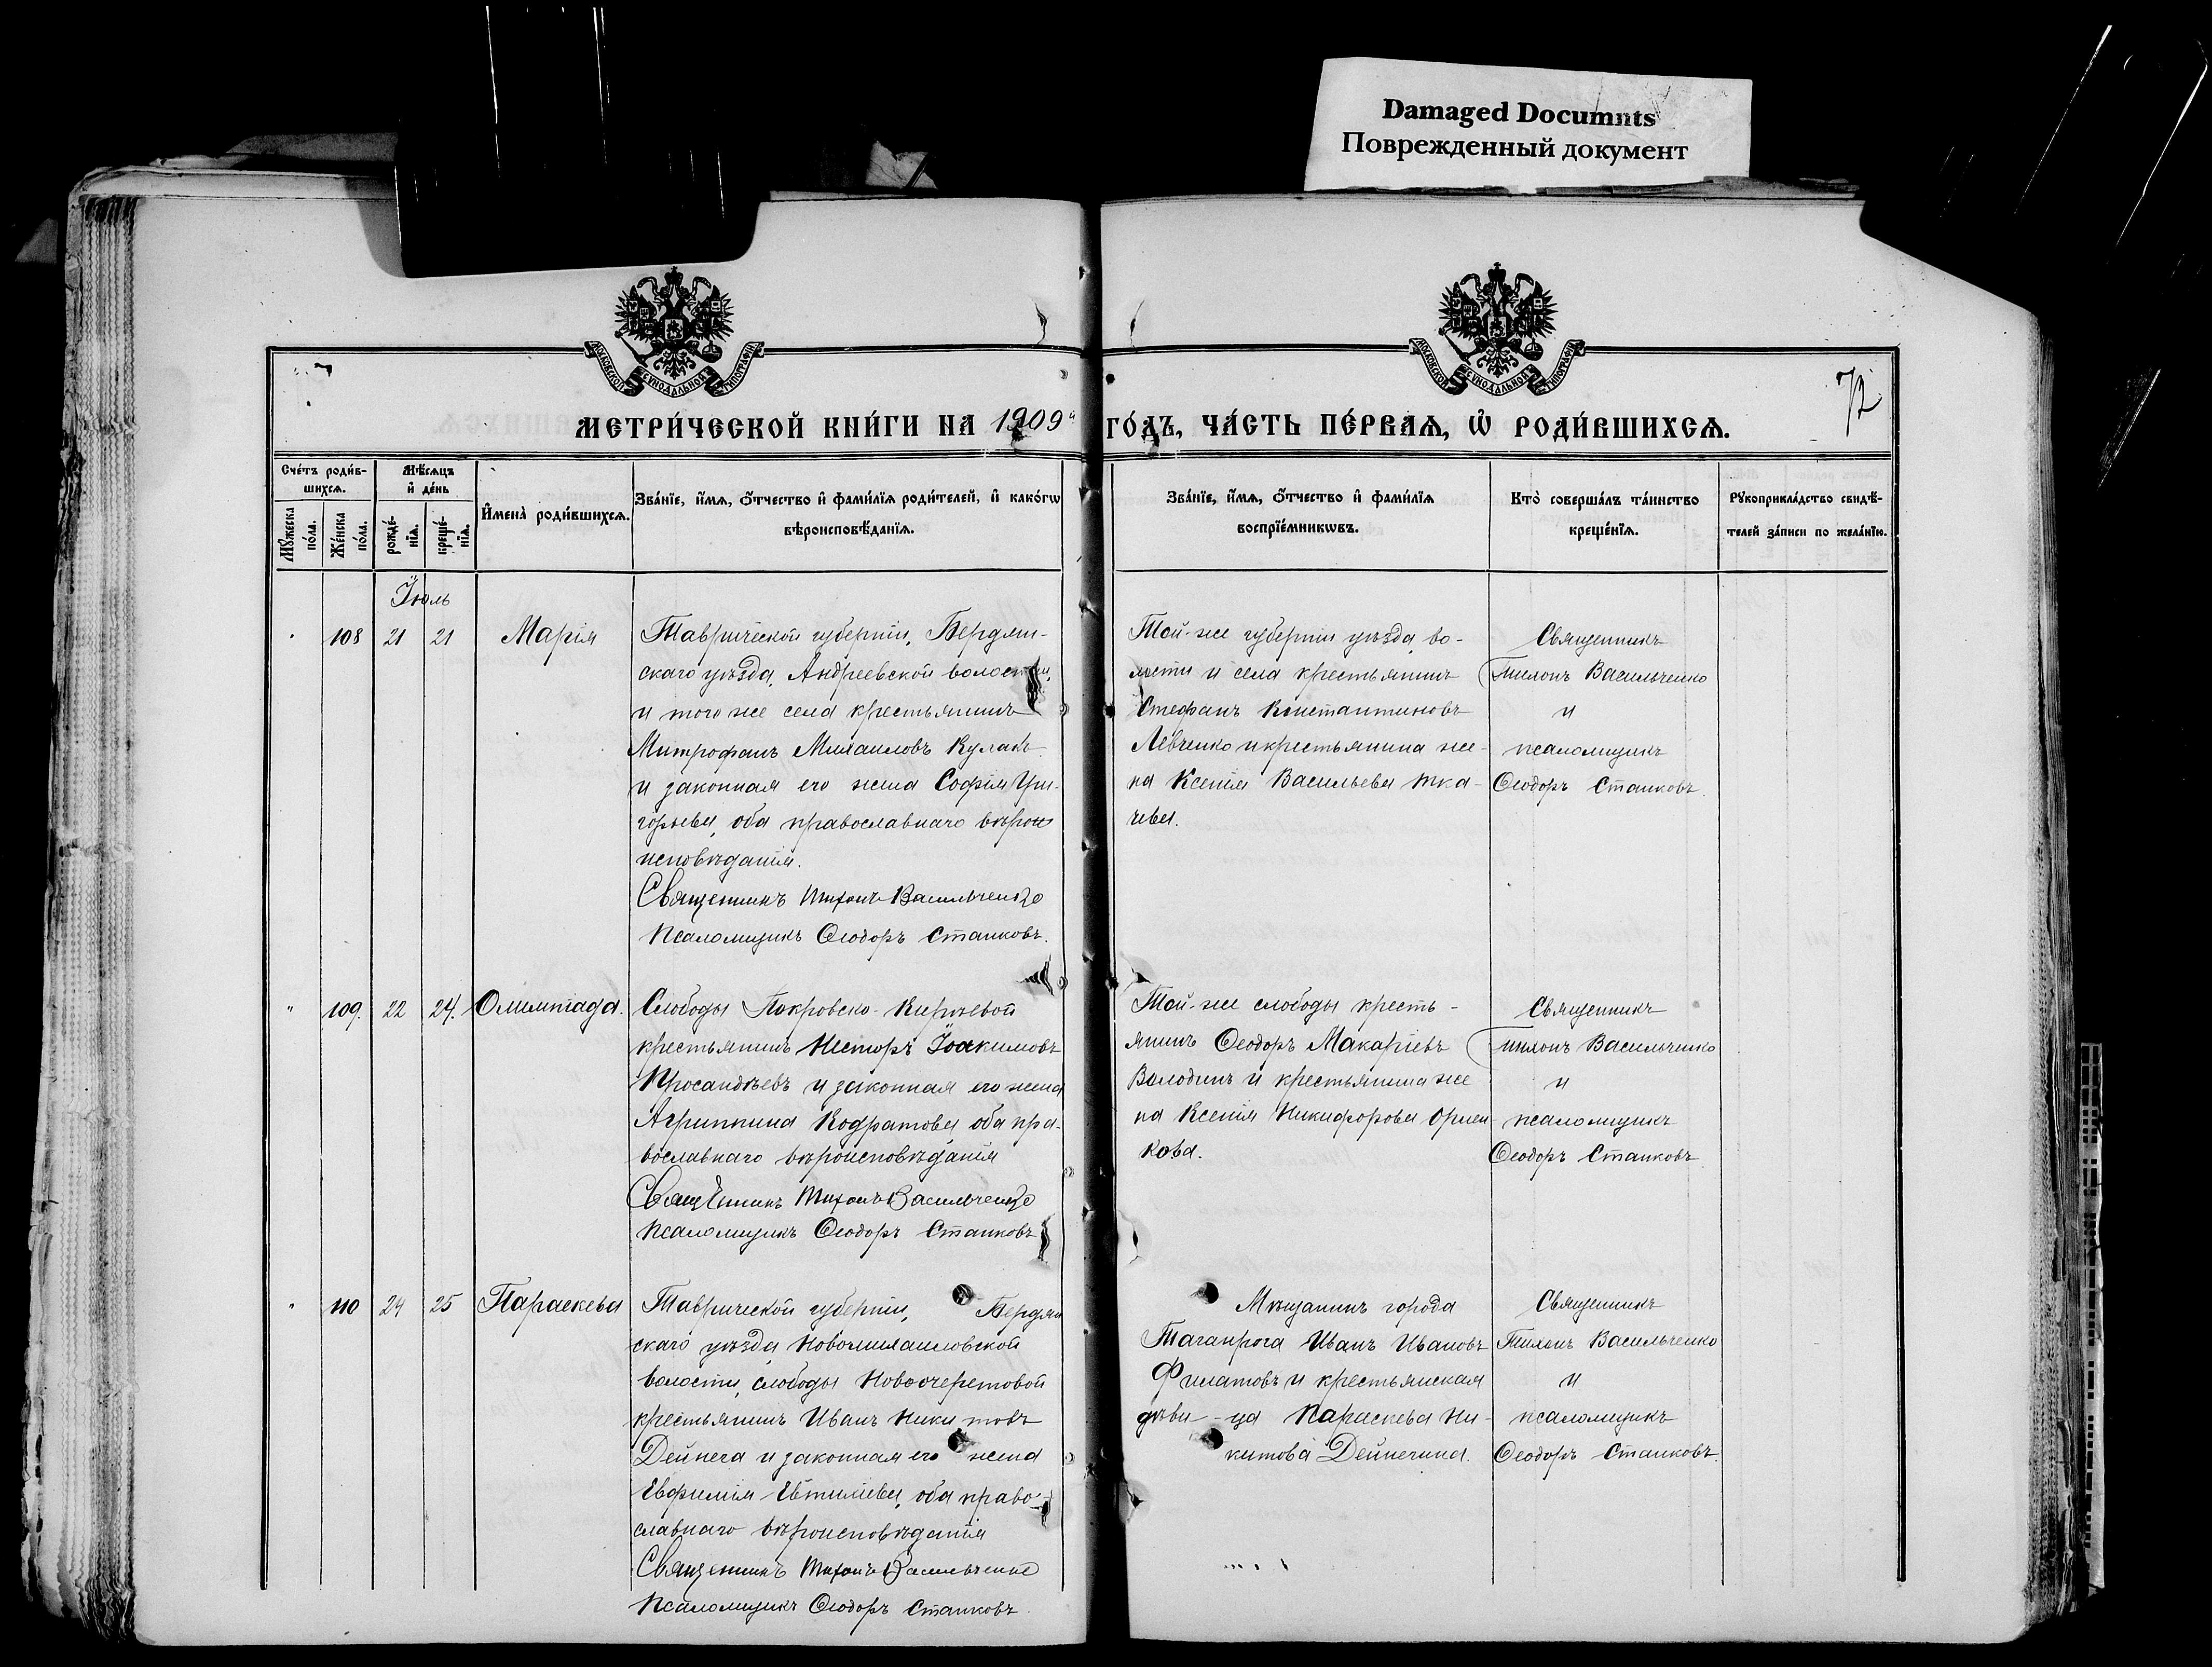 Damaged Documnts
Поврежденный документ
МОСКОВСКОЙ СѴНОДАЛЬНОЙ ТИПОГРАФІИ
МОСКОВСКОЙ СѴНОДАЛЬНОЙ ТИПОГРАФІИ
72
МЕТРИ́ЧЕСКОЙ КНИ́ГИ НА 1909 ГО́ДЪ, ЧА́СТЬ ПЕ́РВАѦ, Ѡ҆ РОДИ́ВШИХСѦ.
Сче́тъ роди́в-
шихсѧ.
Мꙋ́жеска по́ла.
Же́нска по́ла.
Мѣ́сѧцъ
и҆ де́нь
рожде́-
нїѧ.
креще́-
нїѧ.
И҆мена̀ роди́вшихсѧ.
Зва́нїе, и҆́мѧ, ѻ҆́тчество и҆ фами́лїѧ роди́телей, и҆ како́гѡ
вѣроисповѣ́данїѧ.
Зва́нїе, и҆́мѧ, ѻ҆́тчество и҆ фами́лїѧ
воспрїе́мникѡвъ.
Кто̀ соверша́лъ та́инство
креще́нїѧ.
Рꙋкоприкла́дство свидѣ́-
телей за́писи по жела́нїю.
Іюль
" 108 21 21 Марія
Таврической губерніи, Бердян-
скаго уѣзда, Андреевской волости,
и того же села крестьянинъ
Митрофанъ Михаиловъ Кулакъ
и законная его жена Софія Гри-
горьева, оба православнаго вѣрои
исповѣданія.
Священникъ Тихонъ Васильченко
Псаломщикъ Ѳеодоръ Станковъ.
Той-же губерніи уѣзда, во-
лости и села крестьянинъ
Стефанъ Константиновъ
Левченко и крестьянина же-
на Ксенія Васильева Тка-
чева.
Священникъ
Тихонъ Васильченко
и
псаломщикъ
Ѳеодоръ Станковъ.
" 109. 22 24. Олимпіада.
Слободы Покровско-Кирѣевой
крестьянинъ Несторъ Іоакимовъ
Просандѣевъ и законная его жена
Агриппина Кодратова оба пра-
вославнаго вѣроисповѣданія
Священникъ Тихонъ Васильченко
Псаломщикъ Ѳеодоръ Станковъ
Той-же слободы кресть-
янинъ Ѳеодоръ Макаріевъ
Володинъ и крестьянина же
на Ксенія Никифорова Орлен
кова.
Священникъ
Тихонъ Васильченко
и
псаломщикъ
Ѳеодоръ Станковъ.
" 110 24 25 Параскева
Таврической губерніи, Бердян
скаго уѣзда, Новомихаиловской
волости, слободы Новоочеретовой
крестьянинъ Иванъ Никитовъ
Дейнега и законная его жена
Евфимія Евтихіева, оба право-
славнаго вѣроисповѣданія
Священникъ Тихонъ Васильченко
Псаломщикъ Ѳеодоръ Станковъ
Мѣщанинъ города
Таганрога Иванъ Ивановъ
Филатовъ и крестьянская
дѣви-ца Параскева Ни-
китова Дейнегина.
Священникъ
Тихонъ Васильченко
и
псаломщикъ
Ѳеодоръ Станковъ.